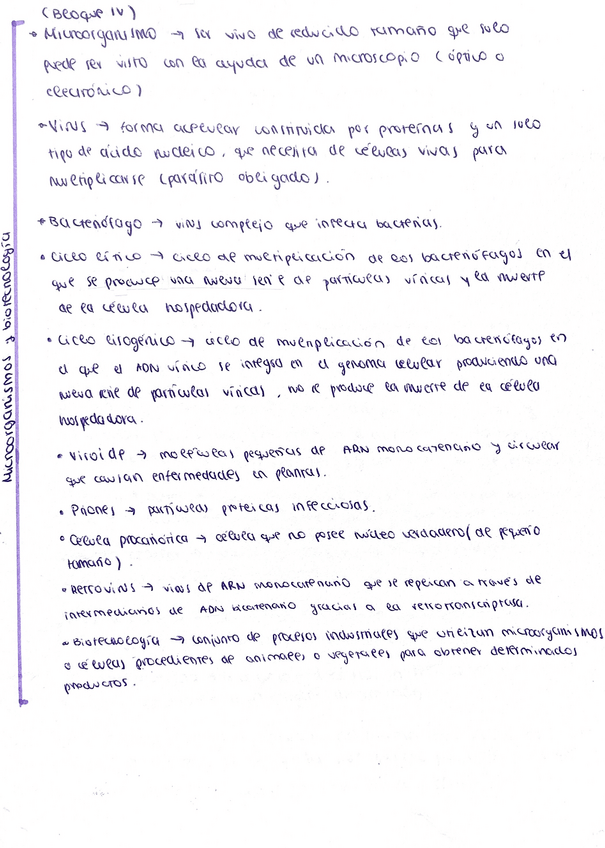 (Bloque IV)
• Microorganismo → ser vivo de reducido tamaño que solo
puede ser visto con la ayuda de un microscopio (óptico o
electrónico)
• Virus → forma acelular constituida por proteínas y un solo
tipo de ácido nucleico, que necesita de células vivas para
multiplicarse (parásito obligado).
• Bacteriófago → virus complejo que infecta bacterias.
• Ciclo lítico → ciclo de multiplicación de los bacteriófagos en el
que se produce una nueva serie de partículas víricas y la muerte
de la célula hospedadora.
• Ciclo lisogénico → ciclo de multiplicación de los bacteriófagos en
el que el ADN vírico se integra en el genoma celular produciendo una
nueva serie de partículas víricas, no se produce la muerte de la célula
hospedadora.
• Viroide → moléculas pequeñas de ARN monocatenario y circular
que causan enfermedades en plantas.
• Priones → partículas proteicas infecciosas.
• Célula procariótica → célula que no posee núcleo verdadero (de pequeño
tamaño).
• Retrovirus → virus de ARN monocatenario que se replican a través de
intermediarios de ADN bicatenario gracias a la retrotranscriptasa.
• Biotecnología → conjunto de procesos industriales que utilizan microorganismos
o células procedentes de animales o vegetales para obtener determinados
productos.
Microorganismos y biotecnología